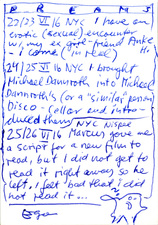 DREAMS
22/23 VI 16 NYC I have an
erotic (sexual) encoun-
ter w/ my ex girl friend Anke
- I come (in real) H.
24/25 VI 16 NYC I brought
Michael Damroth into Michael
Damroth's (or a similar person)
Disco - Cellar and intro-
duced them / NYC
25/26 VI 16 Marcus gave me
a script for a new film to
read, but I did not get to
read it right away so he
left, I feel bad that I did
not read it...